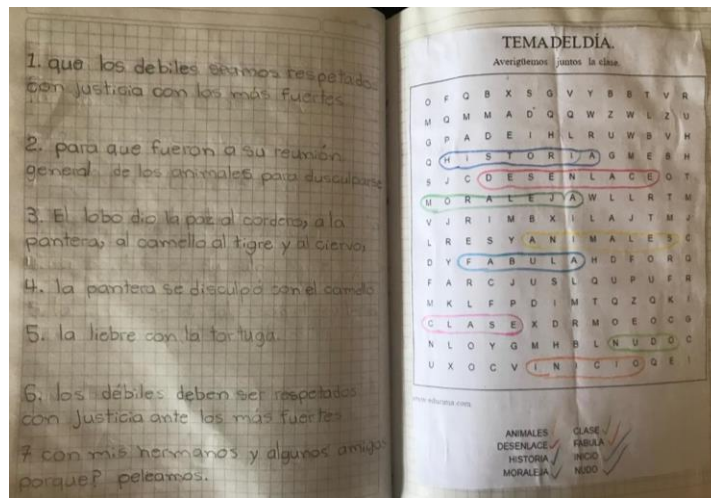 1. que los debiles seamos respetado
con justicia con los más fuertes
2. para que fueron a su reunión
general de los animales para dusculparse
3. El lobo dio la paz al cordero, a la
pantera, al camello al tigre y al ciervo,
4. la pantera se disculpó con el camello
5. la liebre con la tortuga
6. los débiles deben ser respetados
con Justicia ante los más fuertes
7 con mis hermanos y algunos amigos
porque? peleamos.
TEMA DEL DÍA.
Averigüemos juntos la clase.
O F Q B X S G V Y B B T V R
M Q M M A D Q Q W Z W L Z U
G P A D E I H L R U W B V H
Q H I S T O R I A G M E B H
S J C D E S E N L A C E O T
M O R A L E J A W L L R T M
V J R I M B X I L A J T M J
L R E S Y A N I M A L E S C
D Y F A B U L A H D F O R G
F A R C J U S L Q U P U F R
M K L F P D I M T Q Z Q K F
C L A S E X D R M O E O C G
N L O Y G M H B L N U D O C
U X O C V I N I C I O Q E I
ANIMALES CLASE
DESENLACE FABULA
HISTORIA INICIO
MORALEJA NUDO